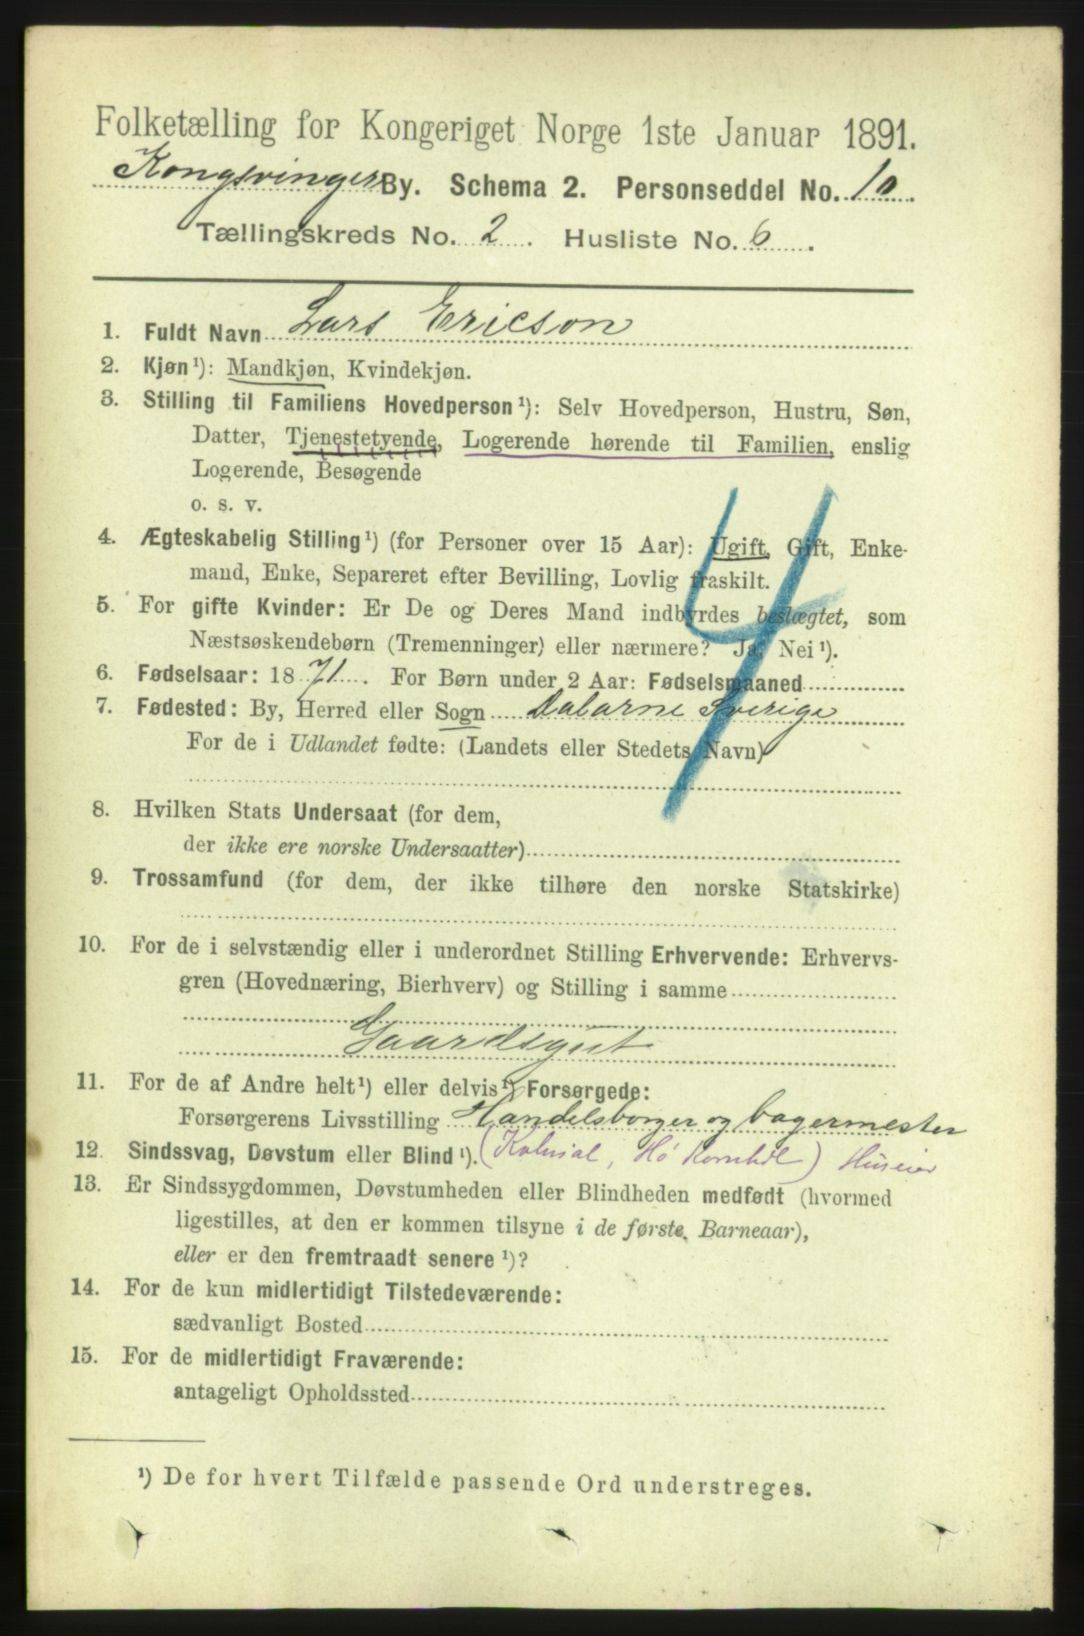 Folketælling for Kongeriget Norge 1ste Januar 1891.
Kongsvinger By. Schema 2. Personseddel No. 10.
Tællingskreds No. 2. Husliste No. 6.
1. Fuldt Navn Lars Ericson
2. Kjøn ¹): Mandkjøn, Kvindekjøn.
3. Stilling til Familiens Hovedperson ¹): Selv Hovedperson, Hustru, Søn,
Datter, Tjenestetyende, Logerende hørende til Familien, enslig
Logerende, Besøgende
o. s. v.
4. Ægteskabelig Stilling ¹) (for Personer over 15 Aar): Ugift, Gift, Enke-
mand, Enke, Separeret efter Bevilling, Lovlig fraskilt.
5. For gifte Kvinder: Er De og Deres Mand indbyrdes beslægtet, som
Næstsøskendebørn (Tremenninger) eller nærmere? Ja, Nei ¹).
4
6. Fødselsaar: 1871. For Børn under 2 Aar: Fødselsmaaned
7. Fødested: By, Herred eller Sogn Dalarne Sverige
For de i Udlandet fødte: (Landets eller Stedets Navn)
8. Hvilken Stats Undersaat (for dem,
der ikke ere norske Undersaatter)
9. Trossamfund (for dem, der ikke tilhøre den norske Statskirke)
10. For de i selvstændig eller i underordnet Stilling Erhvervende: Erhvervs-
gren (Hovednæring, Bierhverv) og Stilling i samme
Gaardsgut
11. For de af Andre helt ¹) eller delvis ¹) Forsørgede:
Forsørgerens Livsstilling Handelsborger og bagermester
12. Sindssvag, Døvstum eller Blind ¹). (Kolonial, Huseier
13. Er Sindssygdommen, Døvstumheden eller Blindheden medfødt (hvormed
ligestilles, at den er kommen tilsyne i de første Barneaar),
eller er den fremtraadt senere ¹)?
14. For de kun midlertidigt Tilstedeværende:
sædvanligt Bosted
15. For de midlertidigt Fraværende:
antageligt Opholdssted
¹) De for hvert Tilfælde passende Ord understreges.